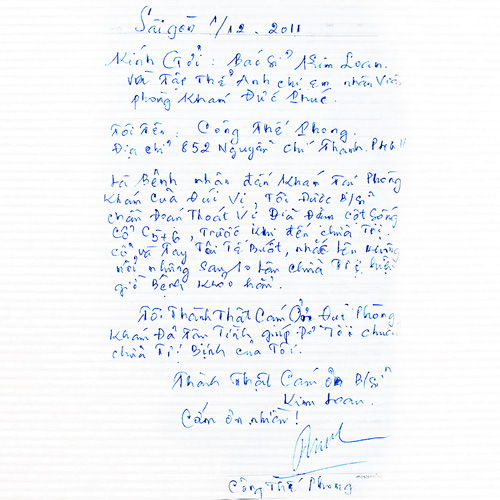 Sài gòn 1/12.2011
Kính Gởi : Bác Sĩ Kim Loan.
và Tập Thể Anh chị em nhân Viên
phòng Khám Đức Phúc.
Tôi Tên : Công Thế Phong.
Địa chỉ 852 Nguyễn Chí Thanh. P4 11
Là Bệnh nhân đến Khám Tại Phòng
Khám Của Quí Vị, Tôi Được B/sĩ
chẩn Đoán Thoát Vị Đĩa Đệm Cột Sống
Cổ C5+6, Trước Khi Đến chữa Trị
cổ và Tay Tôi Tê Buốt, nhấc lên không
nổi nhưng sau 10 lần chữa Trị, hiện
giờ Bệnh Khỏe hẳn.
Tôi Thành Thật Cám Ơn Quí Phòng
Khám Đã Tận Tình giúp Đỡ Tôi
chữa Trị Bịnh của Tôi.
Thành Thật Cám ơn B/sĩ
Kim Loan.
Cám ơn nhiều!
Công Thế Phong